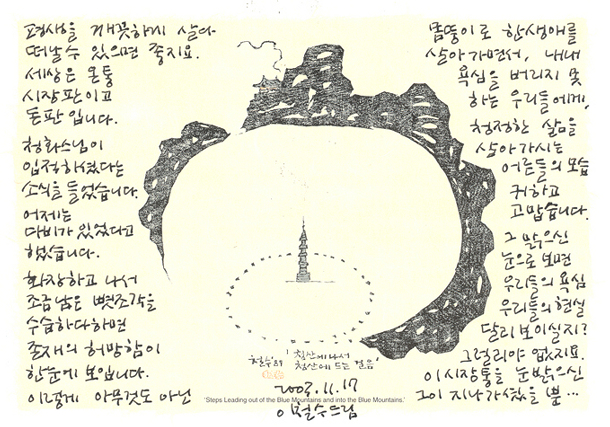 평생을 깨끗하게 살아
떠날 수 있으면 좋지요.
세상은 온통
시장판이고
돈판입니다.
청화스님이
입적하셨다는
소식을 들었습니다.
어제는
다비가 있었다고
했습니다.
화장하고 나서
조금 남은 뼛조각을
수습하다하면
존재의 허망함이
한눈에 보입니다.
이렇게 아무것도 아닌
몸뚱이로 한생애를
살아가면서, 내내
욕심을 버리지 못
하는 우리들에게,
청정한 삶을
살아가시는
어른들의 모습
귀하고
고맙습니다.
그 맑으신
눈으로 보면
우리들의 욕심
우리들의 현실
달리 보이실지?
그럴리야 없지요.
이 시장통을 눈 밝으신
그이 지나가셨을 뿐…
철수'89 '청산에 나서
청산에 드는 걸음'
'Steps Leading out of the Blue Mountains and into the Blue Mountains.'
2003.11.17
이철수드림